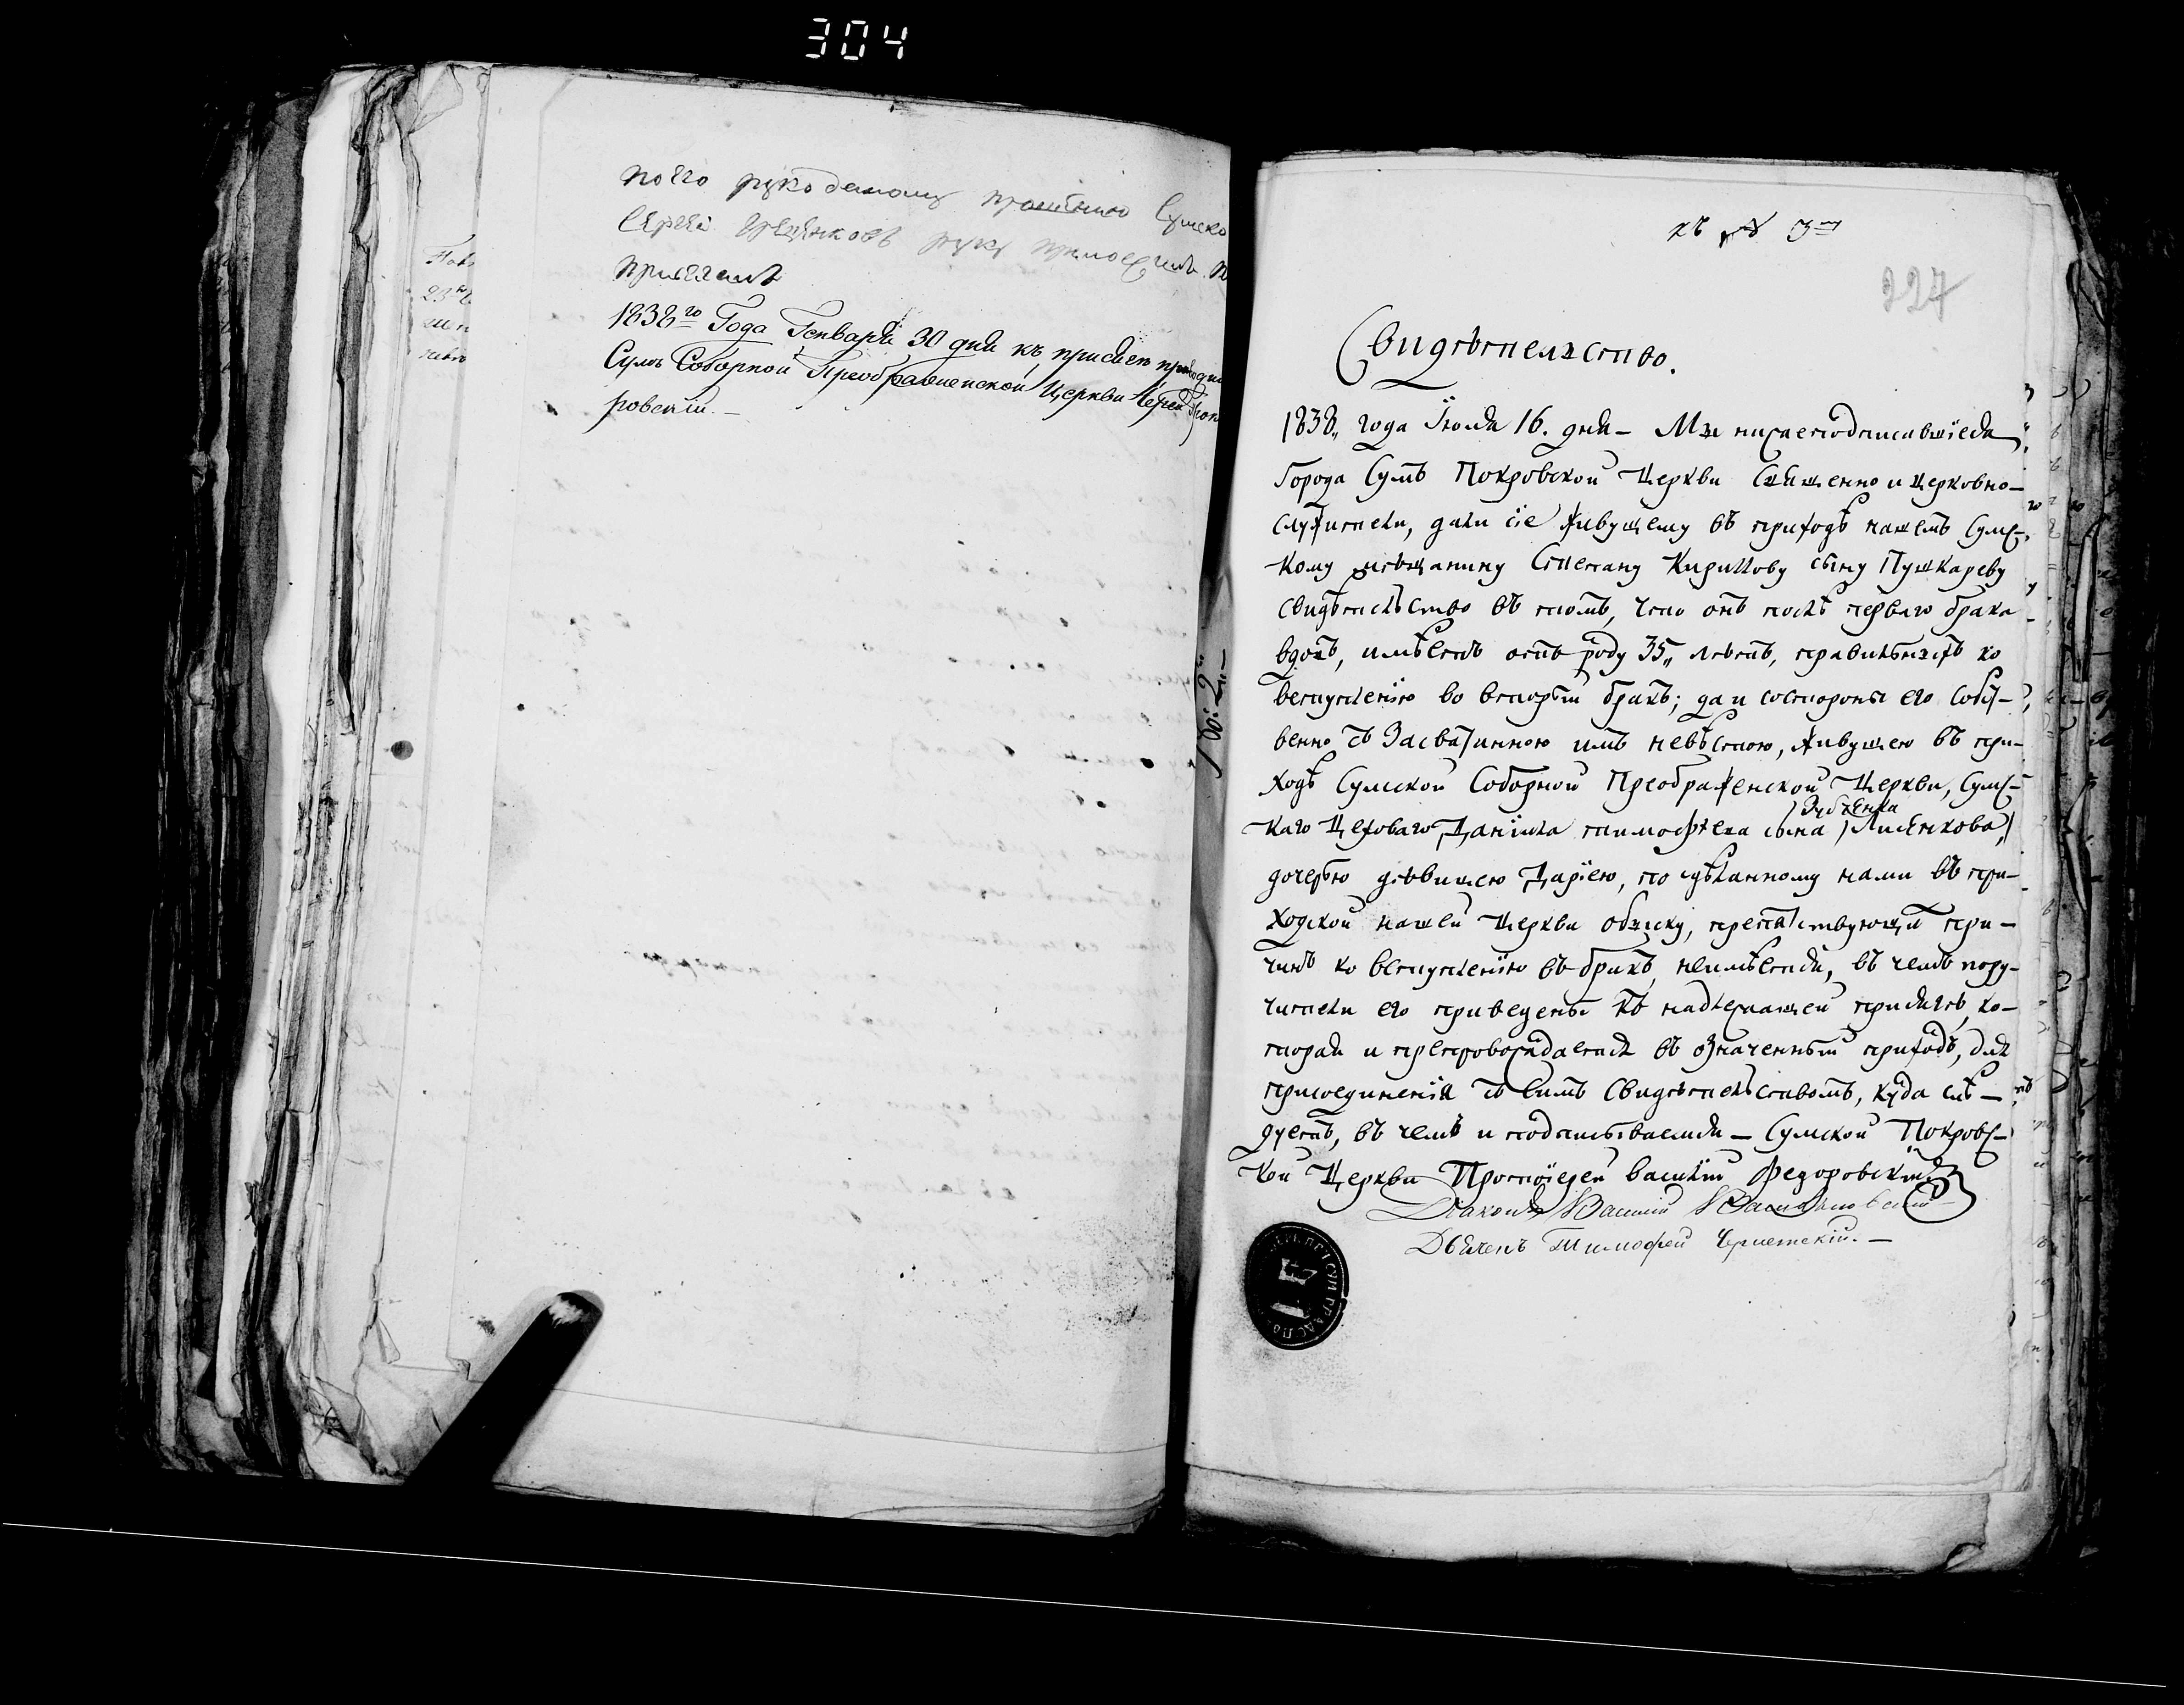 304
по его рукоданому прошению Сумско
Сергей Грецынковъ руку приложилъ
присягалъ
1838го Года Генваря 30 дня къ присяге приводи
Сумъ Соборной Преображенской Церкви Іерей
ровскій. —
къ № 3му
227
Свидѣтельство.
1838„ года Іюля 16. дня — Мы нижеподписавшіеся
города Сумъ Покровской Церкви Священно и церковно-
служители, дали сіе живущему въ приходѣ нашемъ Сумс-
кому мѣщанину Степану Кириллову сыну Пушкареву
свидѣтельство въ томъ, что онъ послѣ перваго брака
вдовъ, имѣетъ отъ роду 35„ лѣтъ, правильныхъ ко
вступленію во вторый бракъ; да и состороны его собст-
венно съ Засватанною имъ невѣстою, живущею въ при-
ходѣ Сумской Соборной Преображенской Церкви, Сумс-
Зубченка
каго Цеховаго Даніила тимофѣева сына Лисенкова,
дочерью дѣвицею Даріею, по сдѣланному нами въ при-
ходской нашей Церкви обыску, препятствующихъ при-
чинъ ко вступленію въ бракъ, неимѣется, въ чемъ пору-
чители его приведены къ надлежащей присягѣ, ко-
торая и препровождается въ означенный приходъ, для
присоединенія съ симъ Свидѣтельствомъ, куда слѣ-
дуетъ, въ чемъ и подписываемся — Сумской Покровс-
кой Церкви Протоіерей Василій Федоровскій
Діаконъ Василій Васильковскій
Дьячекъ Тимофей Чернетскій. —